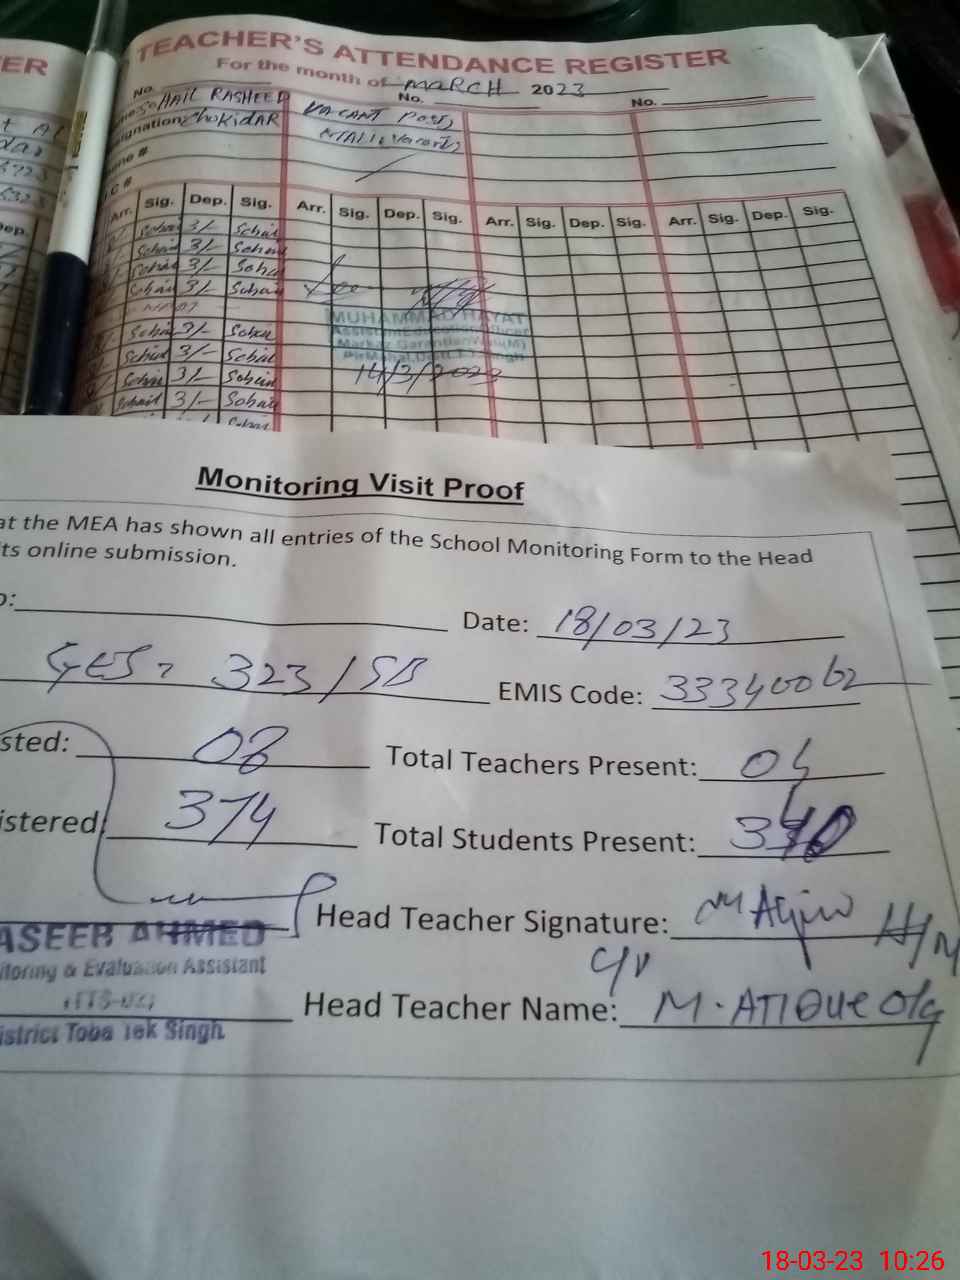 ER
TEACHER'S ATTENDANCE REGISTER
For the month of MARCH 2023
No. No. No.
SOHAIL RASHEED VACANT Post
ignation ChoKidAR
Arr. Sig. Dep. Sig. Arr. Sig. Dep. Sig. Arr. Sig. Dep. Sig. Arr. Sig. Dep. Sig.
Sohail 3/- Sohail
Sohail 3/- Sohail
Sohail 3/- Sohail
Sohail 3/- Sohail
MUHAMMAD HAYAT
Assistant Education Officer
Sohail 3/- Sohail
Sohail 3/- Sohail
14/3/2023
Sohail 3/- Sohail
Sohail 3/- Sohail
Monitoring Visit Proof
at the MEA has shown all entries of the School Monitoring Form to the Head
ts online submission.
o: Date: 18/03/23
GES, 323/SB EMIS Code: 33340062
sted: 08 Total Teachers Present: 04
istered 374 Total Students Present: 340
ASEEB AHMED Head Teacher Signature: H/M
itoring & Evaluation Assistant
Head Teacher Name: M. ATIQUE
istrict Toba Tek Singh
18-03-23 10:26